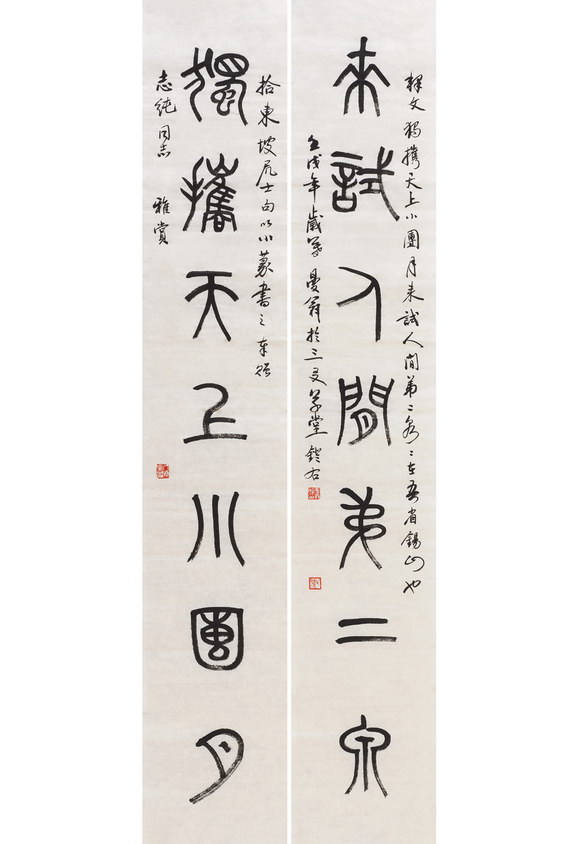 釋文獨攜天上小團月来試人間第二泉〻在吾省錫山也
来試人間弟二泉
壬戌年歲寒曼翁於三友草堂鐙右
拾東坡居士句以小篆書之奉貽
獨攜天上小團月
志純同志 雅賞